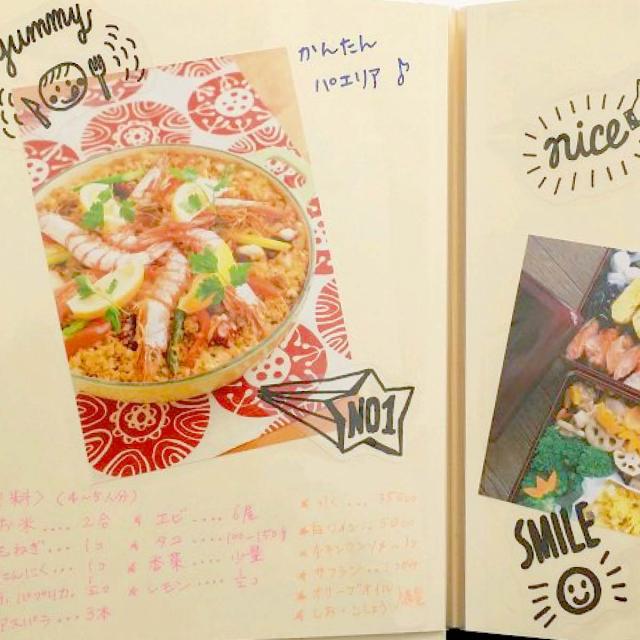 yummy
かんたん
パエリア♪
nice
NO1
料〉(4〜5人分)
お米....2合
ねぎ....1コ
にんにく...1コ
パプリカ
アスパラ...3本
★ エビ....6尾
★ タコ....100〜150g
★ 香菜....少量
★ レモン....½コ
★ 水
★ 白ワイン
★ チキンコンソメ
★ サフラン
★ オリーブオイル
★ しお・こしょう
SMILE